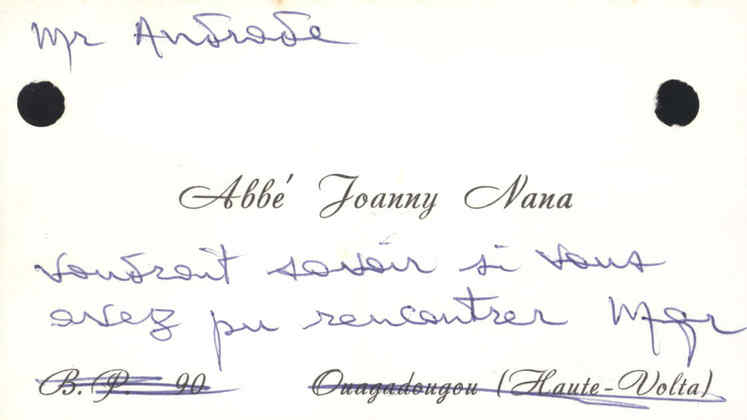 Mr Andrade
Abbé Joanny Nana
voudrait savoir si vous
avez pu rencontrer Mgr
B.P. 90 Ouagadougou (Haute-Volta)